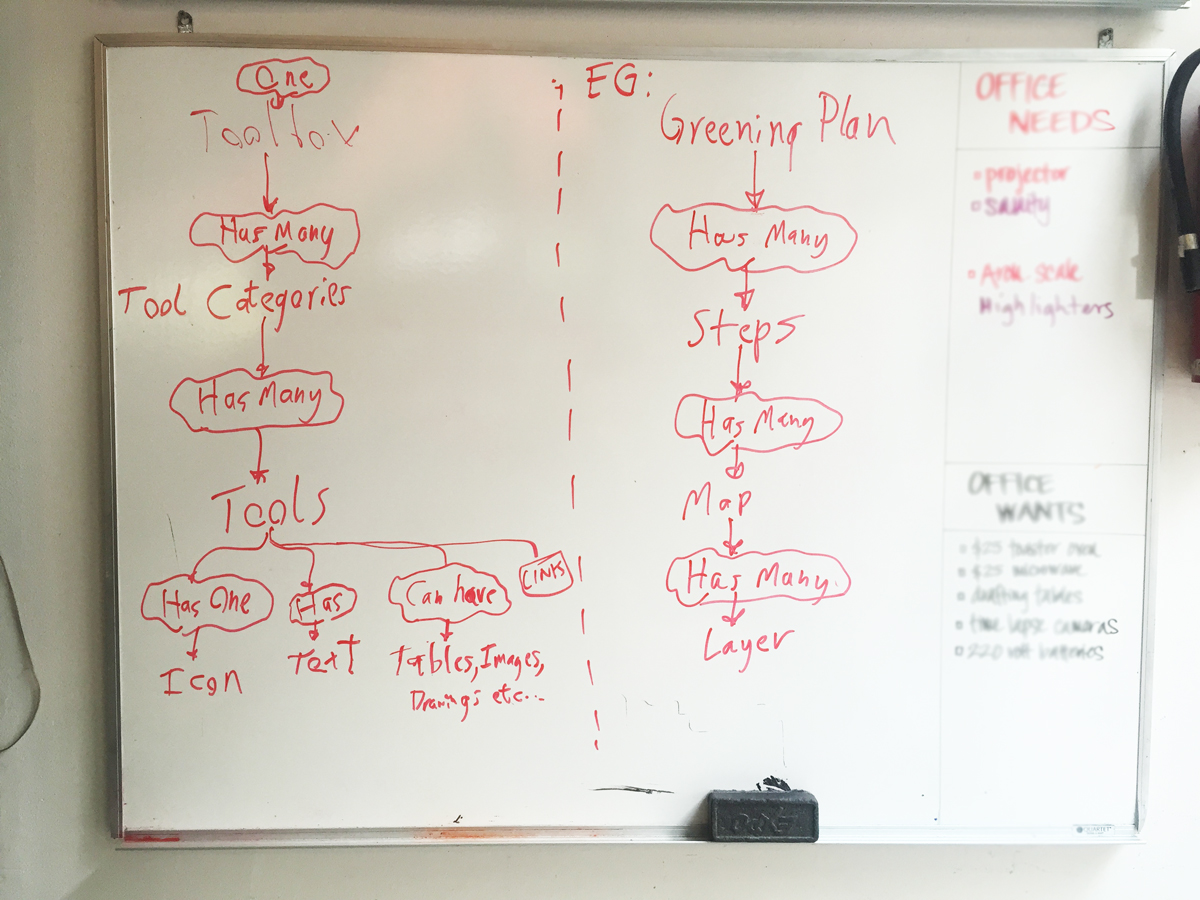 One
Toolbox
Has Many
Tool Categories
Has Many
Tools
Has One
Has
Can have
LINKS
Icon
Text
Tables, Images,
Drawings etc...
EG:
Greening Plan
Has Many
Steps
Has Many
Map
Has Many
Layer
OFFICE
NEEDS
projector
sanity
Arch. scale
Highlighters
OFFICE
WANTS
$25 toaster oven
$25 microwave
drafting tables
time lapse cameras
220 volt batteries
QUARTET